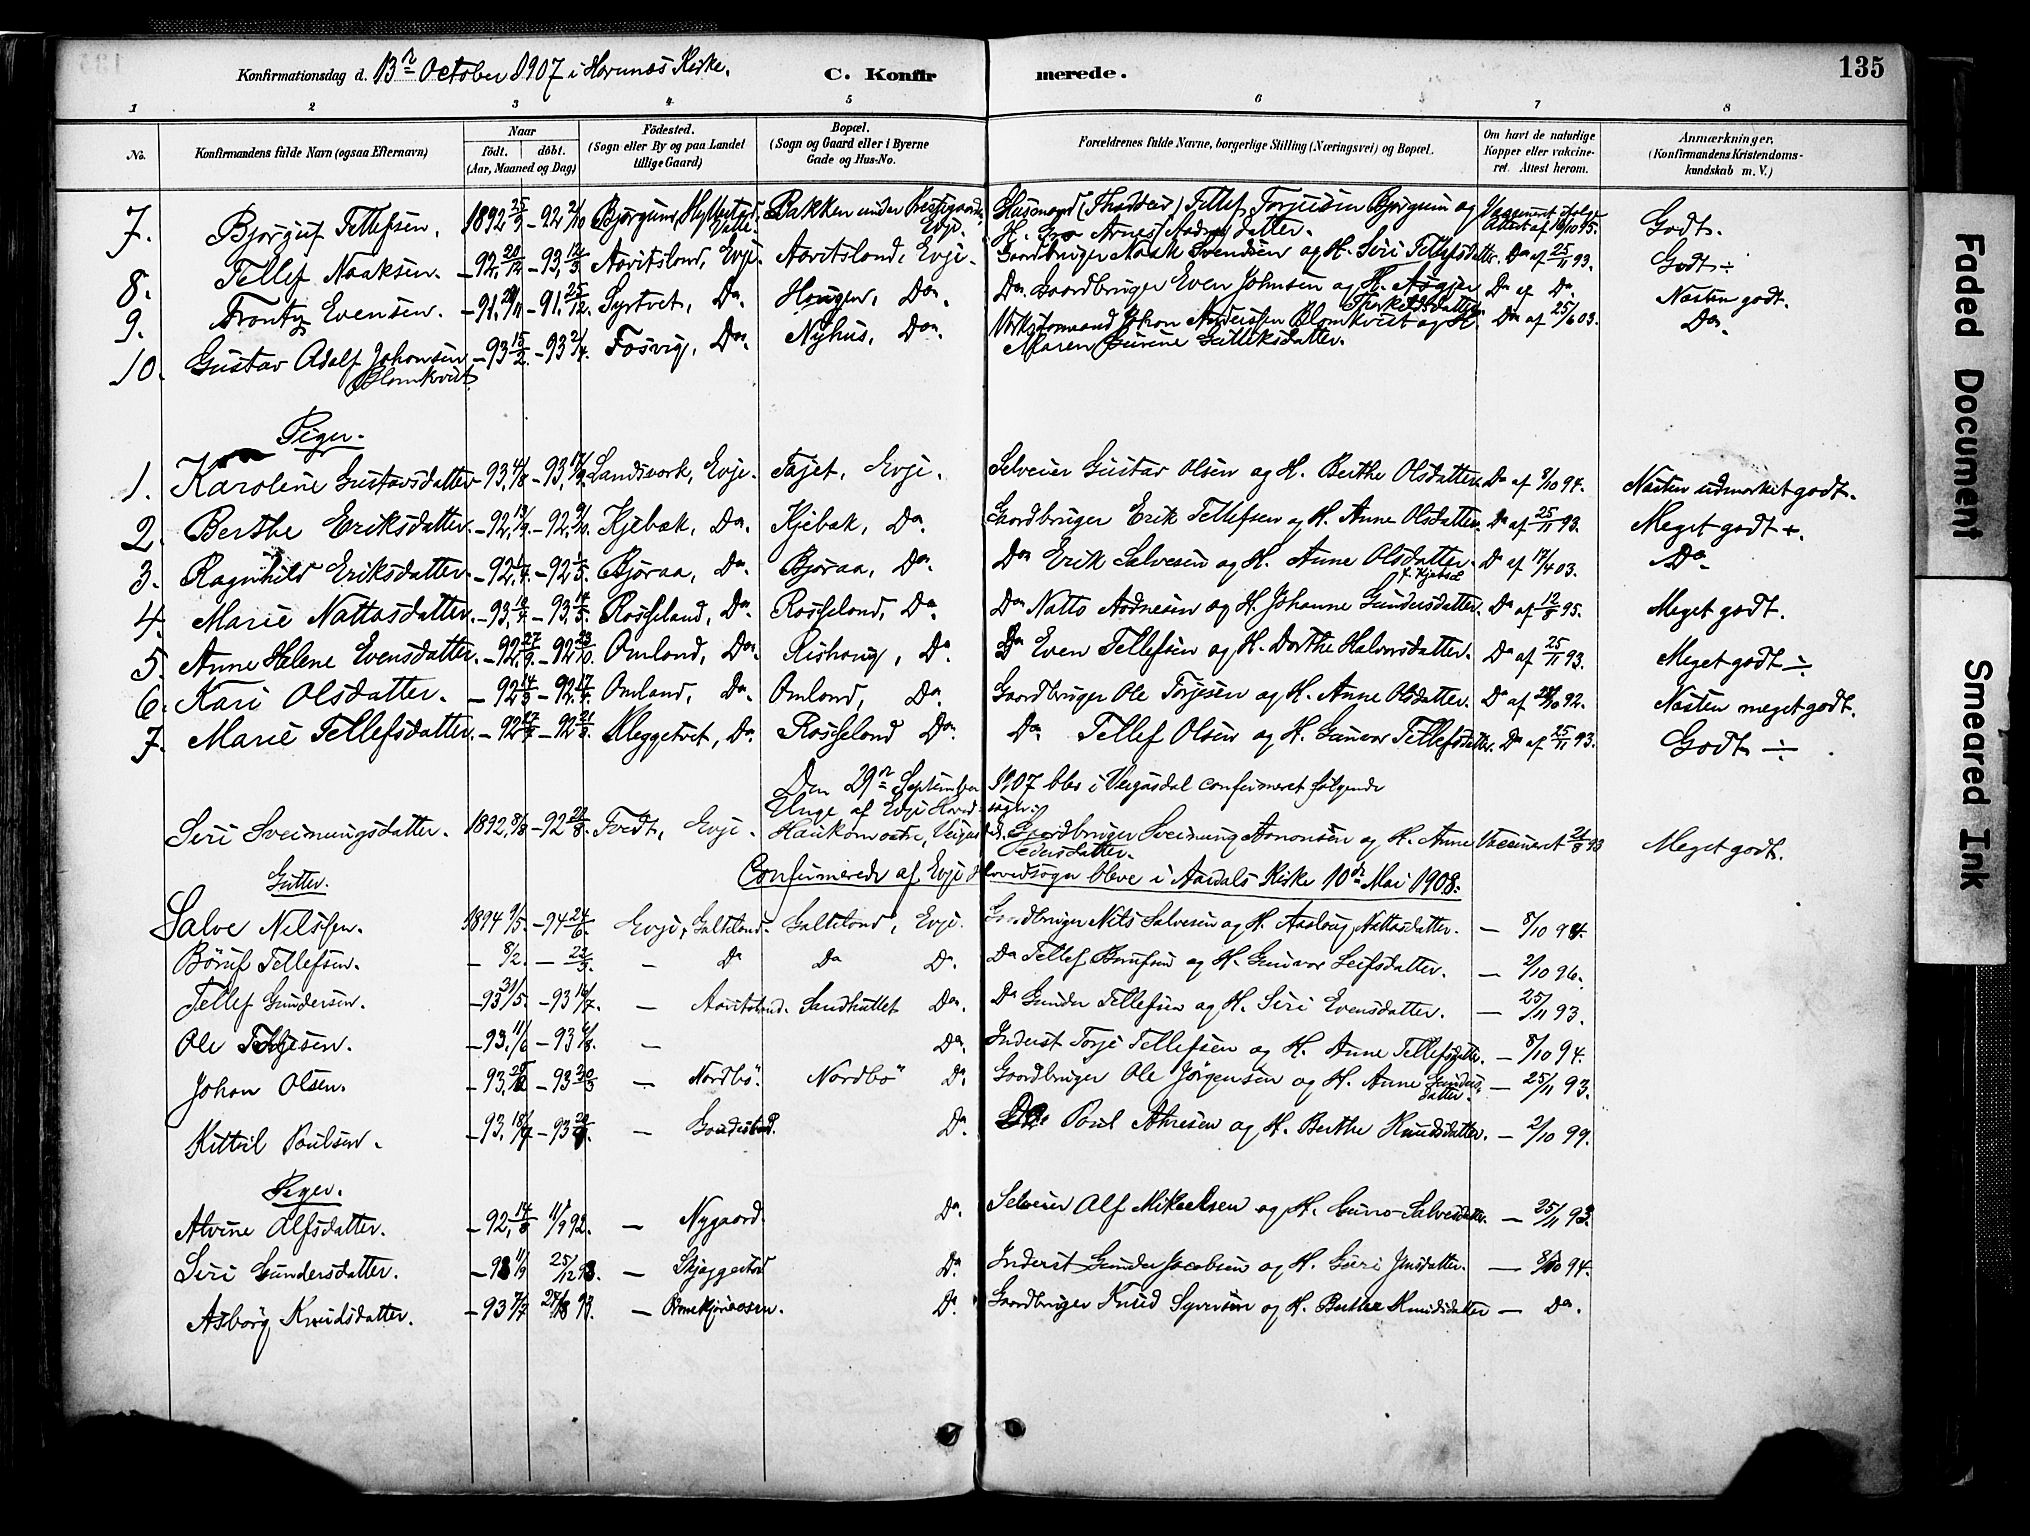 Konfirmationsdag d. 13de October 1907 i Hornnes Kirke. C. Konfirmerede. 135
1 2 3 4 5 6 7 8
No. Konfirmandens fulde Navn (ogsaa Efternavn) Naar født. døbt. (Aar, Maaned og Dag) Fødested. (Sogn eller By og paa Landet tillige Gaard) Bopæl. (Sogn og Gaard eller i Byerne Gade og Hus-No. Forældrenes fulde Navne, borgerlige Stilling (Næringsvei) og Bopæl. Om havt de naturlige Kopper eller vakcineret. Attest herom. Anmærkninger. (Konfirmandens Kristendomskundskab m. V.)
7. Bjørguf Tellefsen. 1892 25/9 - 92 2/10 Bjørgum, Hyllestad Valle. Bakken under Prestegaarden Evje. Husmand Tellef Torjussen Bjørgum og H. Gro Arnesdatter. Attest af 16/10 95. Godt.
8. Tellef Naaksen. - 92. 20/12 - 93, 12/3 Aavitsland, Evje. Aavitsland, Evje. Gaardbruger Naak Svendsen og H. Siri Tellefsdatter. Da af 25/11 93. Godt ÷
9. Evensen. - 91. - 91. 25/12. Syrtvet, Da. Haugen, Da. Da. Gaardbruger Even Johnsen og H. Aasgjer Da af Da. Næsten godt.
10. Gustav Adolf Johansen Blomkvist. - 93 15/2 - 93 2/4. Fosvig, Da. Nyhus, Da. Johan Andersen Blomkvist og H. Maren Gurine Gulliksdatter. Da af 25/6 03. Da.
Piger.
1. Karoline Gustavsdatter - 93, 4/8 - 93, 17/9 Landsverk, Evje. Tajet, Evje. Selveier Gustav Olsen og H. Berthe Olsdatter. Da af 8/10 94. Næsten udmerket godt.
2. Berthe Eriksdatter. - 92, - 92, Kjebak, Da. Kjebak, Da. Gaardbruger Erik Tellefsen og H. Anne Olsdatter. Da af 25/11 93. Meget godt +.
3. Ragnhild Eriksdatter. - 92. - 92 Bjøraa, Da. Bjøraa, Da. Da Erik Salvesen og H. Anne Olsdatter f. Kjebak Da af 17/4 03. Da.
4. Marie Nattasdatter. - 93. - 93. Rosseland, Da. Rosseland, Da. Da Natto Aadnesen og H. Johanne Gundersdatter. Da af 95. Meget godt.
5. Anne Helene Evensdatter. - 92. 27/9. - 92 23/10. Omland, Da. Rishaug, Da. Da Even Tellefsen og H. Dorthe Halvorsdatter. Da af 25/11 93. Meget godt ÷
6. Kari Olsdatter. - 92 14/3 - 92. 17/4. Omland, Da. Omland, Da. Gaardbruger Ole Torjesen og H. Anne Olsdatter. Da af 92. Næsten meget godt.
7. Marie Tellefsdatter. - 92 - 92 Meggetvet, Da. Rosseland Da. Da Tellef Olsen og H. Gunvor Tellefsdatter. Da af 25/11 93. Godt ÷
Den 29de September 1907 blev i Veigusdal confirmeret følgende
Unge af Evje Hovedsogn:
Siri Sveinungsdatter. 1892, 8/8 - 92 28/8. Tvedt, Evje. Haukomoene, Gaardbruger Sveinung Aanonsen og H. Anne Pedersdatter. Vaccineret 93 Meget godt.
Confirmerede af Evje Hovedsogn bleve i Aardals Kirke 10de Mai 1908.
Gutter.
Salve Nilssen. 1894 9/5 - 94 24/6. Evje, Galteland. Galteland, Evje. Gaardbruger Nils Salvesen og H. Aaslaug Nattasdatter. — 8/10 94.
Børuf Tellefsen. — 8/2. — — Da Da Da. Da Tellef Børufsen og H. Gunvor Leifsdatter. — 2/10 96.
Tellef Gundersen. - 93 31/5. - 93 16/7. — Aavitsland. Sandhullet Da. Da Gunder Tellefsen og H. Siri Evensdatter. — 25/11 93.
Ole Torjesen. - 93. 11/6 - 93 6/8. — Da. Inderst Torje Tellefsen og H. Anne Tellefsdatter. — 8/10 94.
Johan Olsen. - 93, - 93 — Nordbø. Nordbø Da. Gaardbruger Ole Jørgensen og H. Anne Gundersdatter. — 25/11 93.
Kittil Paulsen. - 93. 18/7 - 93 — Da. Da Paul Aanesen og H. Berthe Knudsdatter. — 2/10 99.
Piger.
Alvine Alfsdatter. - 92, 14/8 11/9 92. — Nygaard. Da. Selveier Alf Mikaelsen og H. Guro Salvesdatter. — 25/11 93.
Siri Gundersdatter. - 93 11/9 25/12 93. — Skjæggestad Da. Inderst Gunder Jacobsen og H. Siri Jensdatter. — 8/10 94.
Asborg Knudsdatter. - 93 7/7 27/8 93. — Da. Gaardbruger Knud Syvertsen og H. Berthe Knudsdatter — Da.
Faded Document
Smeared Ink